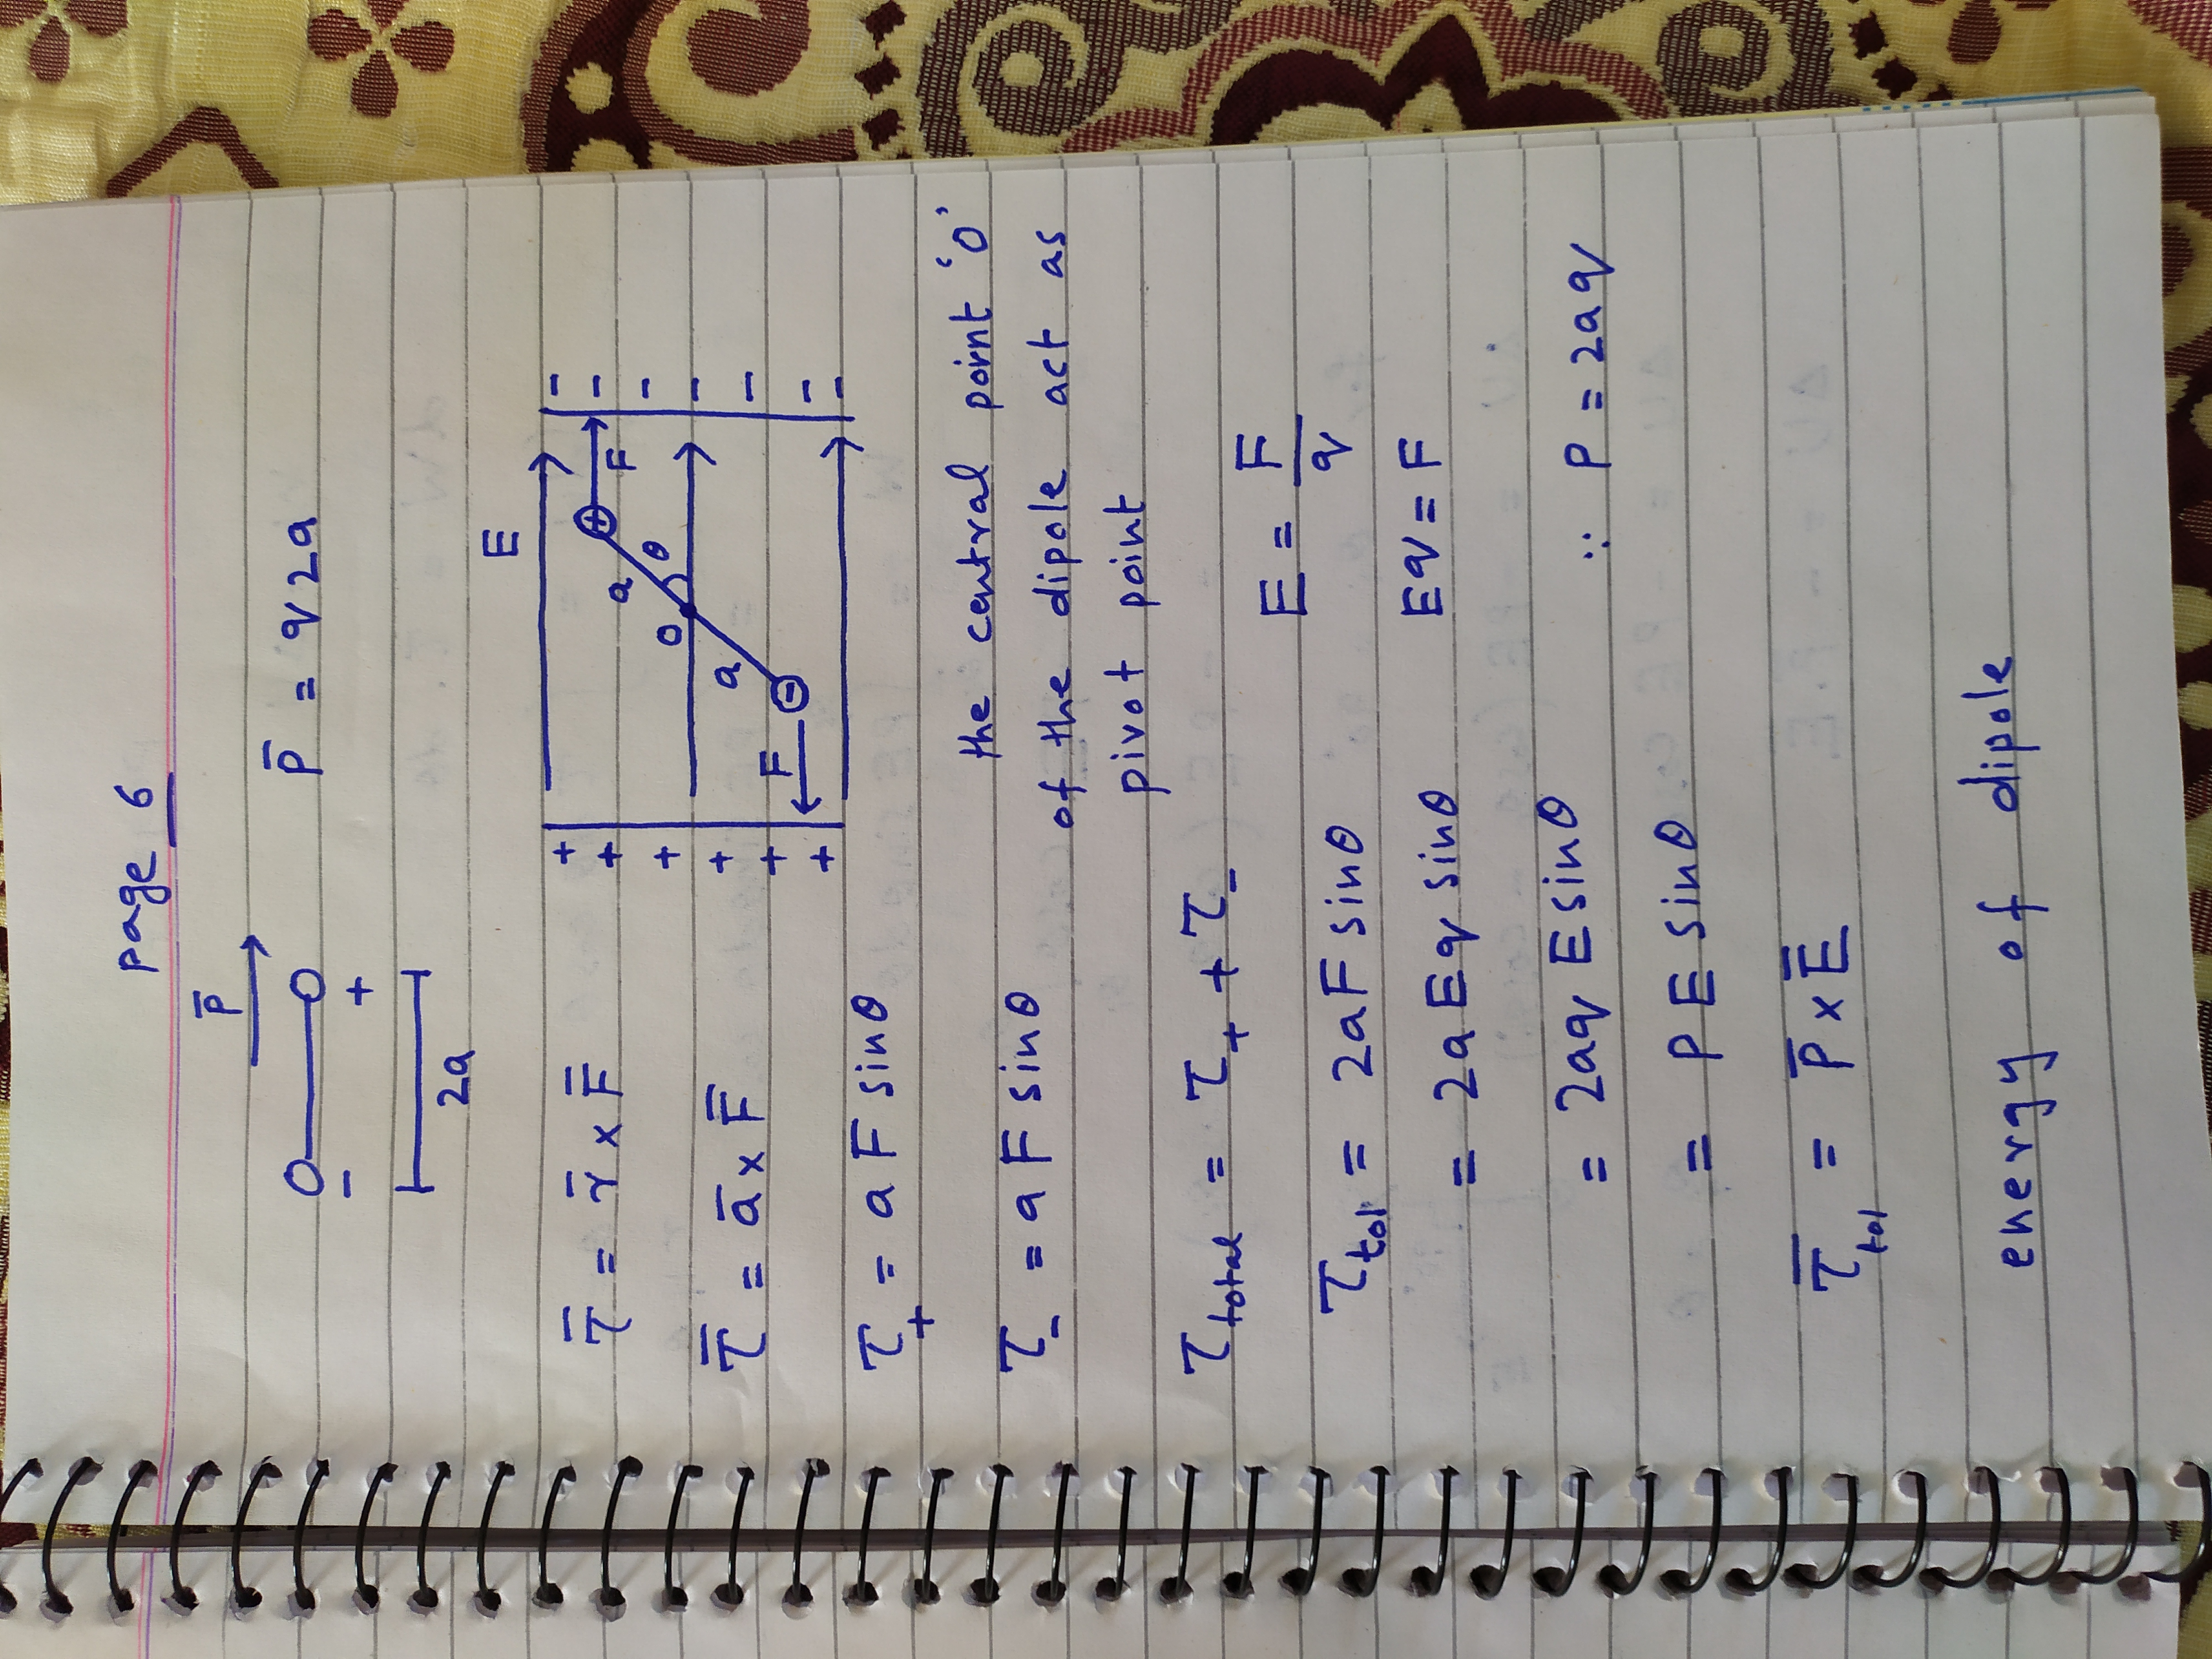 page 6
P̄
P̄ = q 2a
- +
2a
E
τ̄ = r̄ × F̄
+ + + + + +
- - - - - - -
+ F
a θ
O
a
F -
τ̄ = ā × F̄
τ₊ = a F sinθ
the central point 'O'
τ₋ = a F sinθ
of the dipole act as
pivot point
τtotal = τ₊ + τ₋
E = F/q
τtol = 2aF sinθ
Eq = F
= 2a Eq sinθ
= 2aq E sinθ
∵ P = 2aq
= P E sinθ
τ̄tol = P̄ × Ē
energy of dipole